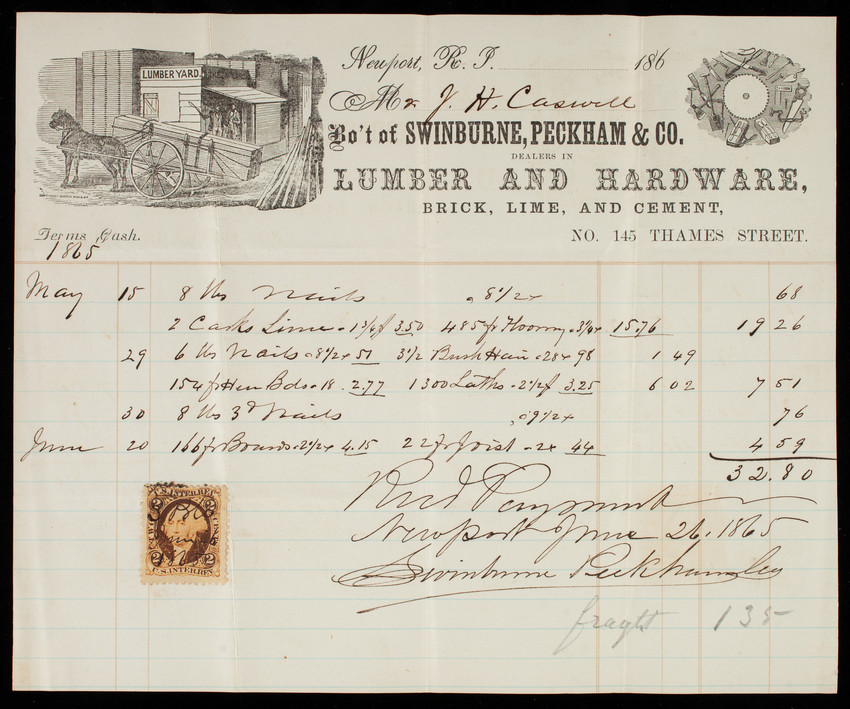 LUMBER YARD.
Newport, R. I. 186
Mr J. H. Caswell
Bo't of SWINBURNE, PECKHAM & CO.
DEALERS IN
LUMBER AND HARDWARE,
BRICK, LIME, AND CEMENT,
Terms Cash. NO. 145 THAMES STREET.
1865
May 15 8 lbs Nails 8 1/2 68
2 Casks Lime 3.50 485 ft 15.76 19 26
29 6 lbs Nails 8 1/2 51 3 1/2 Bush Hair 28 98 1 49
154 ft Hem Bds 18 2.77 1300 Laths 2 1/2 3.25 6 02 7 51
30 8 lbs 3d Nails 9 1/2 76
June 20 166 ft Boards 2 1/2 4.15 22 ft Joist 2 44 4 59
32.80
Recd Payment
Newport June 26, 1865
Swinburne Peckham & Co
U.S. INTER. REV.
2 2
U.S. INTER. REV.
fraght 135